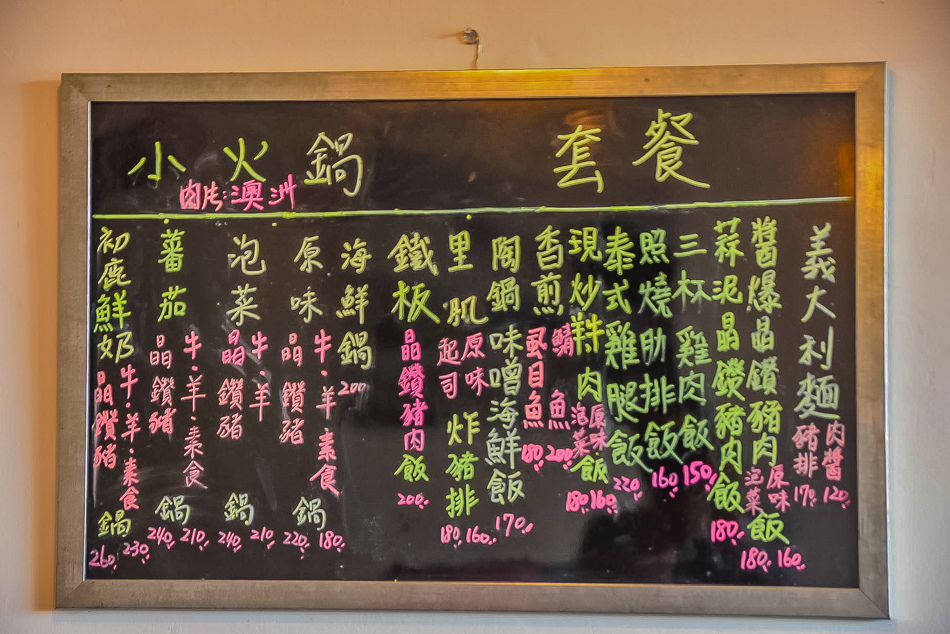 小火鍋
肉片:澳洲
套餐
義大利麵
肉醬 120.
豬排 170.
醬爆晶鑽豬肉
原味 160.
泡菜 180.
飯
蒜泥晶鑽豬肉飯 180.
三杯雞肉飯 150.
照燒肋排飯 160
泰式雞腿飯 220.
現炒牛羊肉
原味 160.
泡菜 180.
飯
香煎
鯖魚 200.
虱目魚 180.
陶鍋味噌海鮮飯 170.
里肌
原味 160.
起司 180.
炸豬排
鐵板晶鑽豬肉飯 200.
海鮮鍋 200
原味
牛.羊.素食 180.
晶鑽豬 220.
鍋
泡菜
牛.羊 210.
晶鑽豬 240.
鍋
蕃茄
牛.羊.素食 210.
晶鑽豬 240.
鍋
初鹿鮮奶
牛.羊.素食 230.
晶鑽豬 260.
鍋